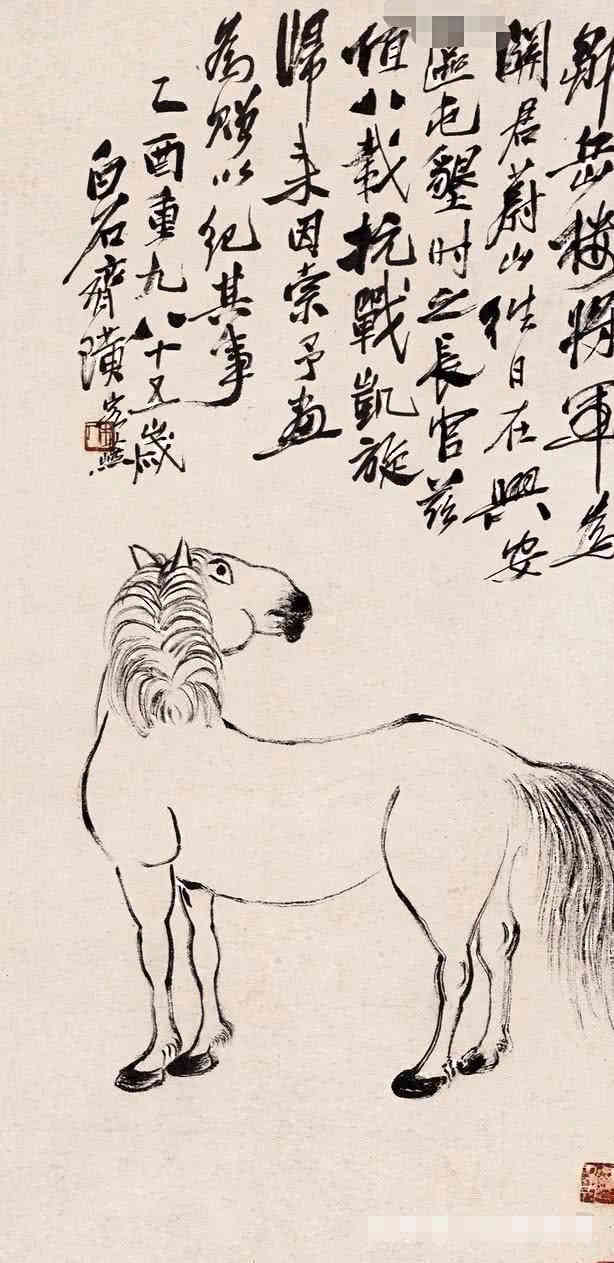 鄒岳樓將軍
關君蔚山往日在興安
區屯墾時之長官茲
值八載抗戰凱旋
歸來因索予畫
為贈以紀其事
乙酉重九八十五歲
白石齊璜